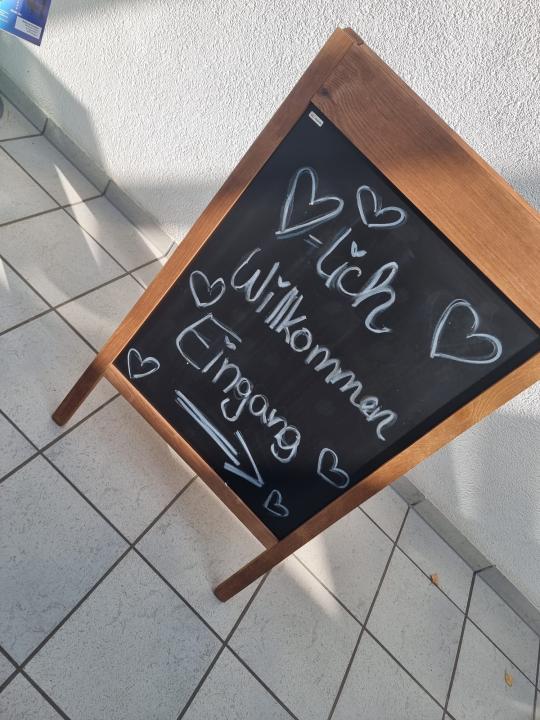 ♡-lich
Willkommen
Eingang